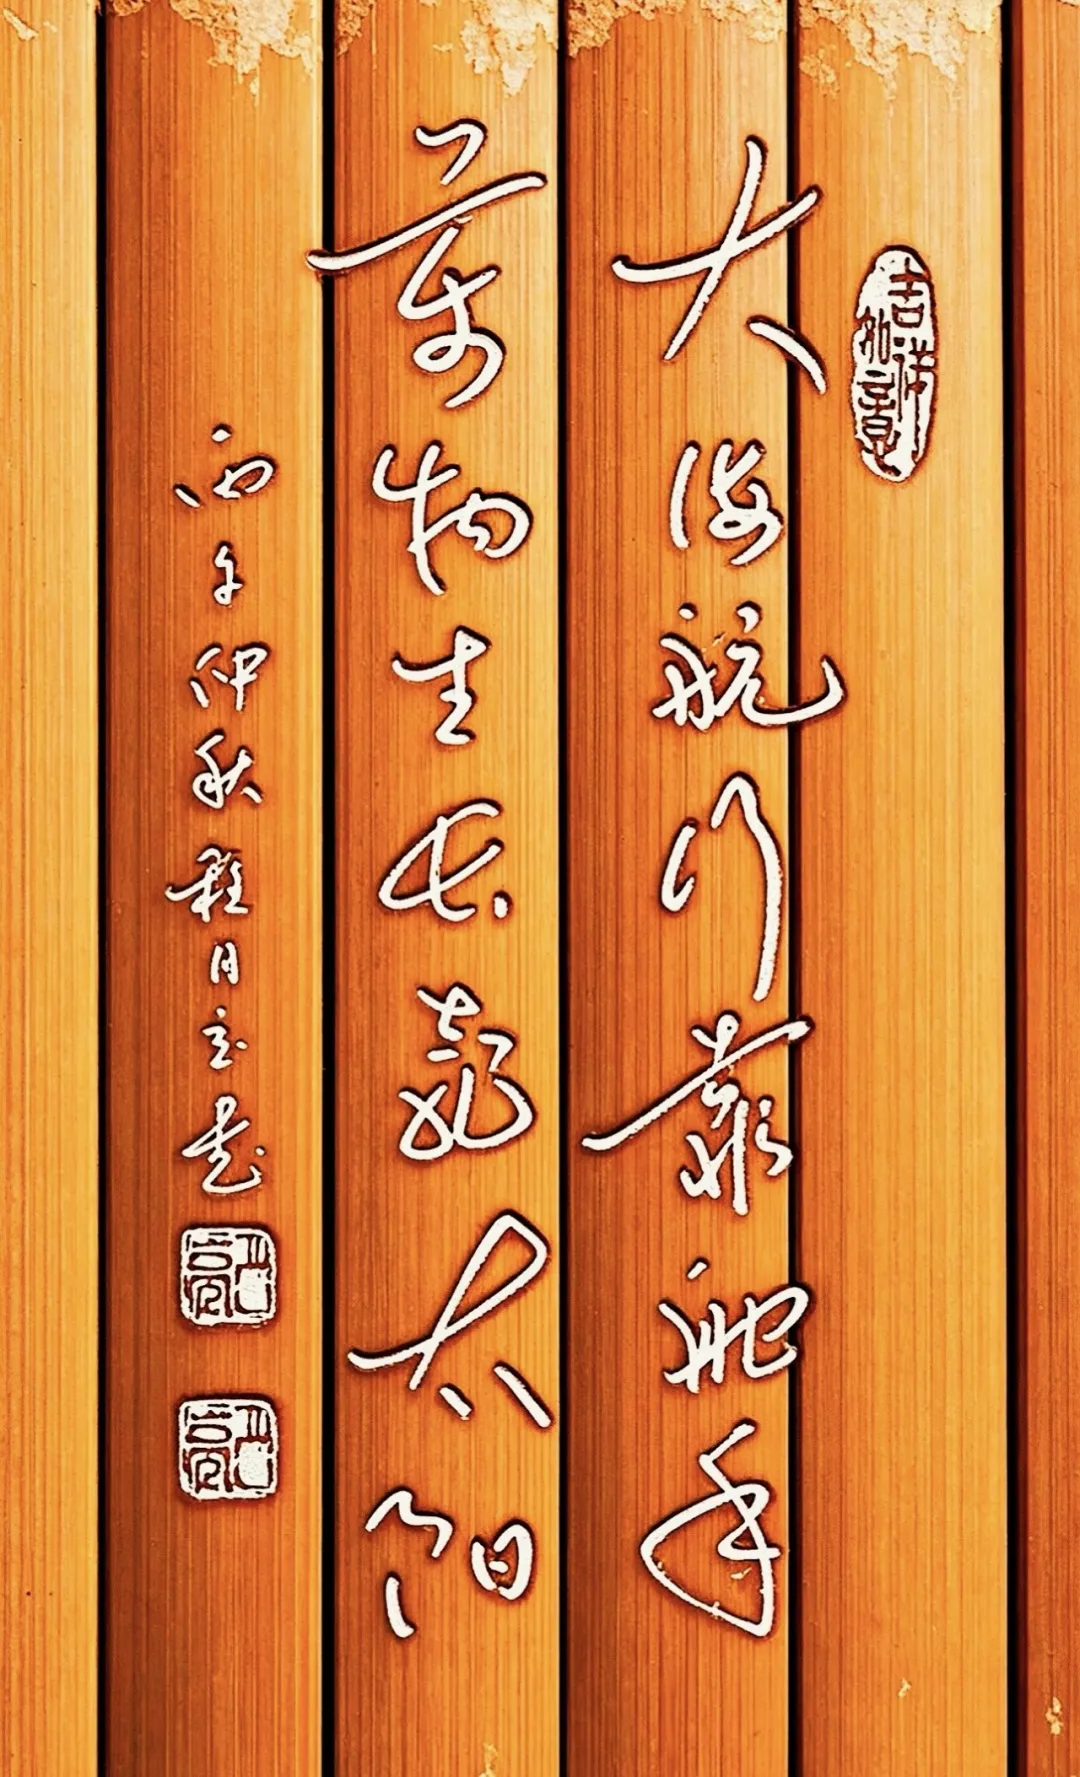 吉祥如意
大海航行靠舵手
万物生长靠太阳
丙午仲秋程月立书